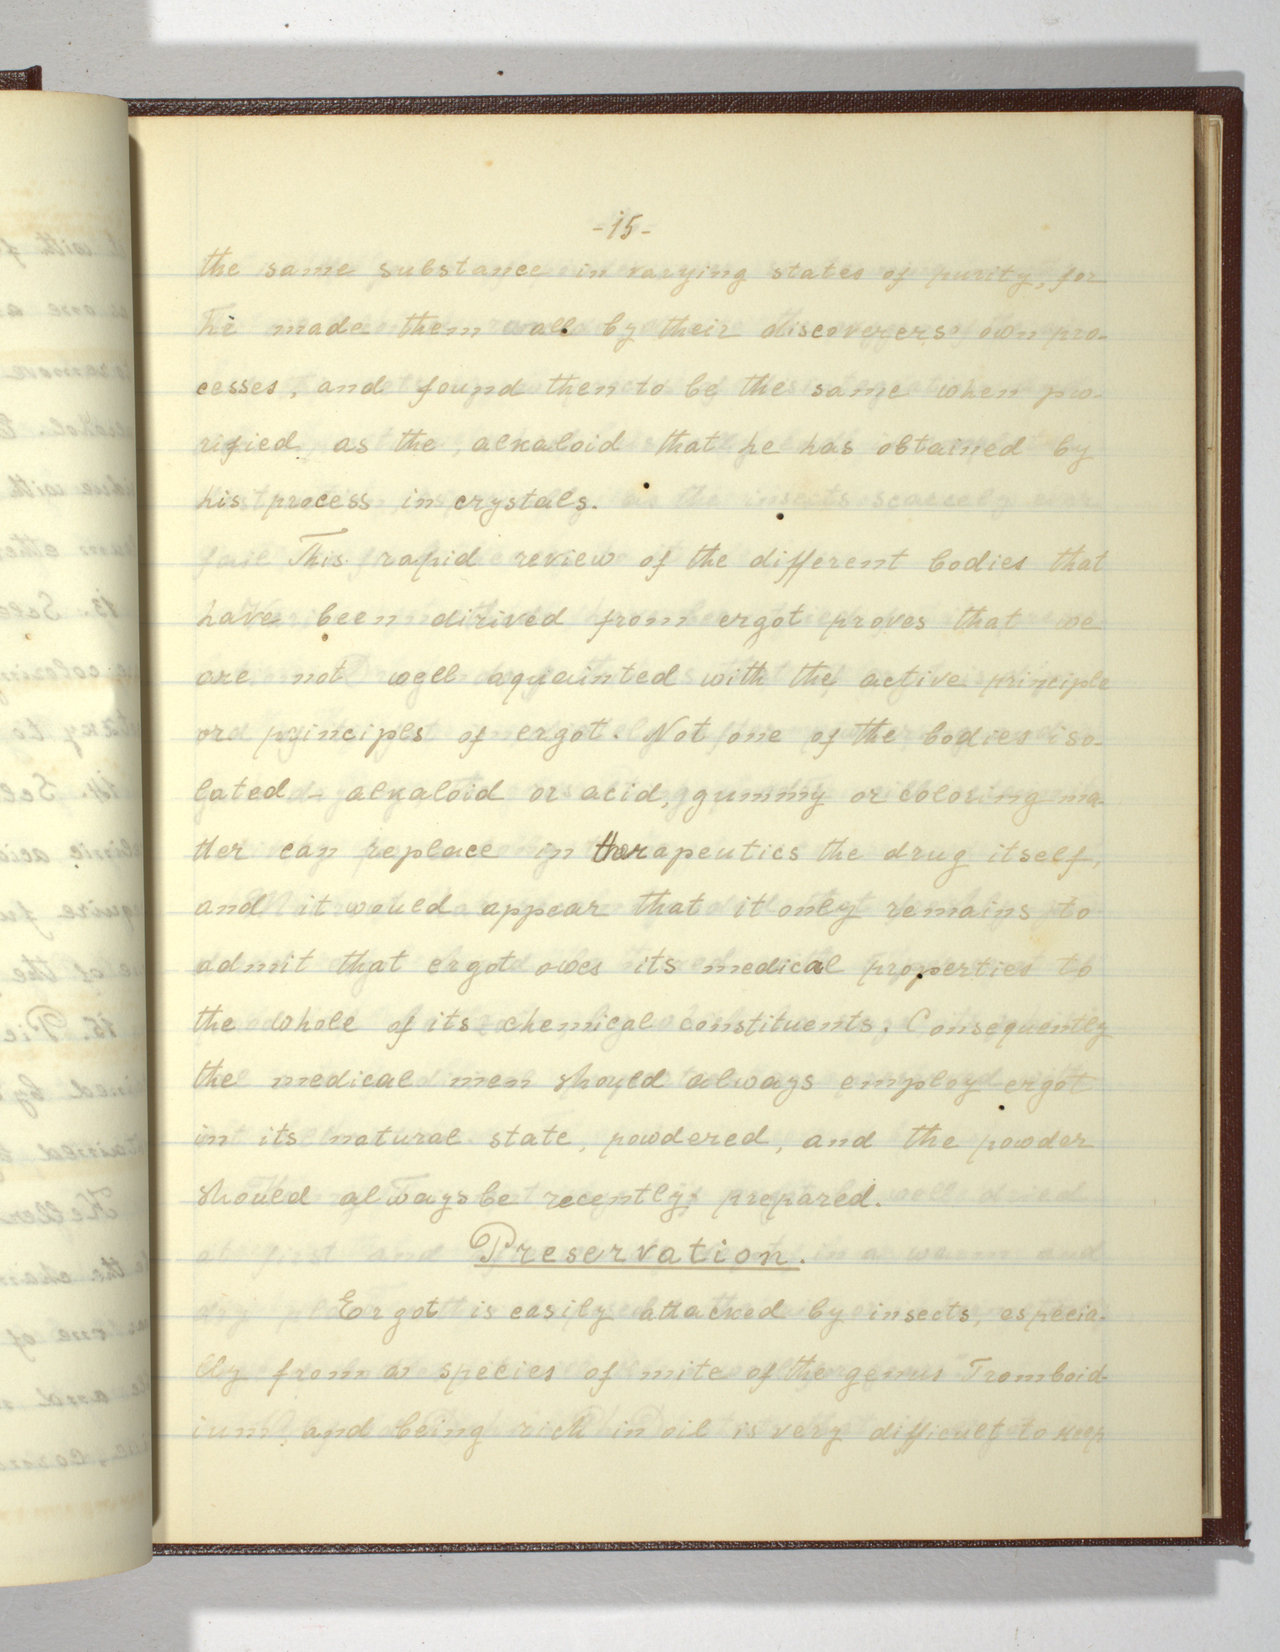 -15-
the same substance in varying states of purity, for
he made them all by their discoverers own pro-
cesses, and found then to be the same when pu-
rified as the alkaloid that he has obtained by
his process in crystals.
This rapid review of the different bodies that
have been dirived from ergot proves that we
are not well aquainted with the active principle
or principls of ergot. Not one of the bodies iso-
lated - alkaloid or acid, gummy or coloring ma-
tter can replace in therapeutics the drug itself,
and it would appear that it only remains to
admit that ergot owes its medical properties to
the whole of its chemical constituents. Consequently
the medical men should always employ ergot
in its natural state, powdered, and the powder
should always be recently prepared.
Preservation.
Ergot is easily attacked by insects, especia-
lly from a species of mite of the genus Tromboid-
ium, and being rich in oil is very difficult to keep